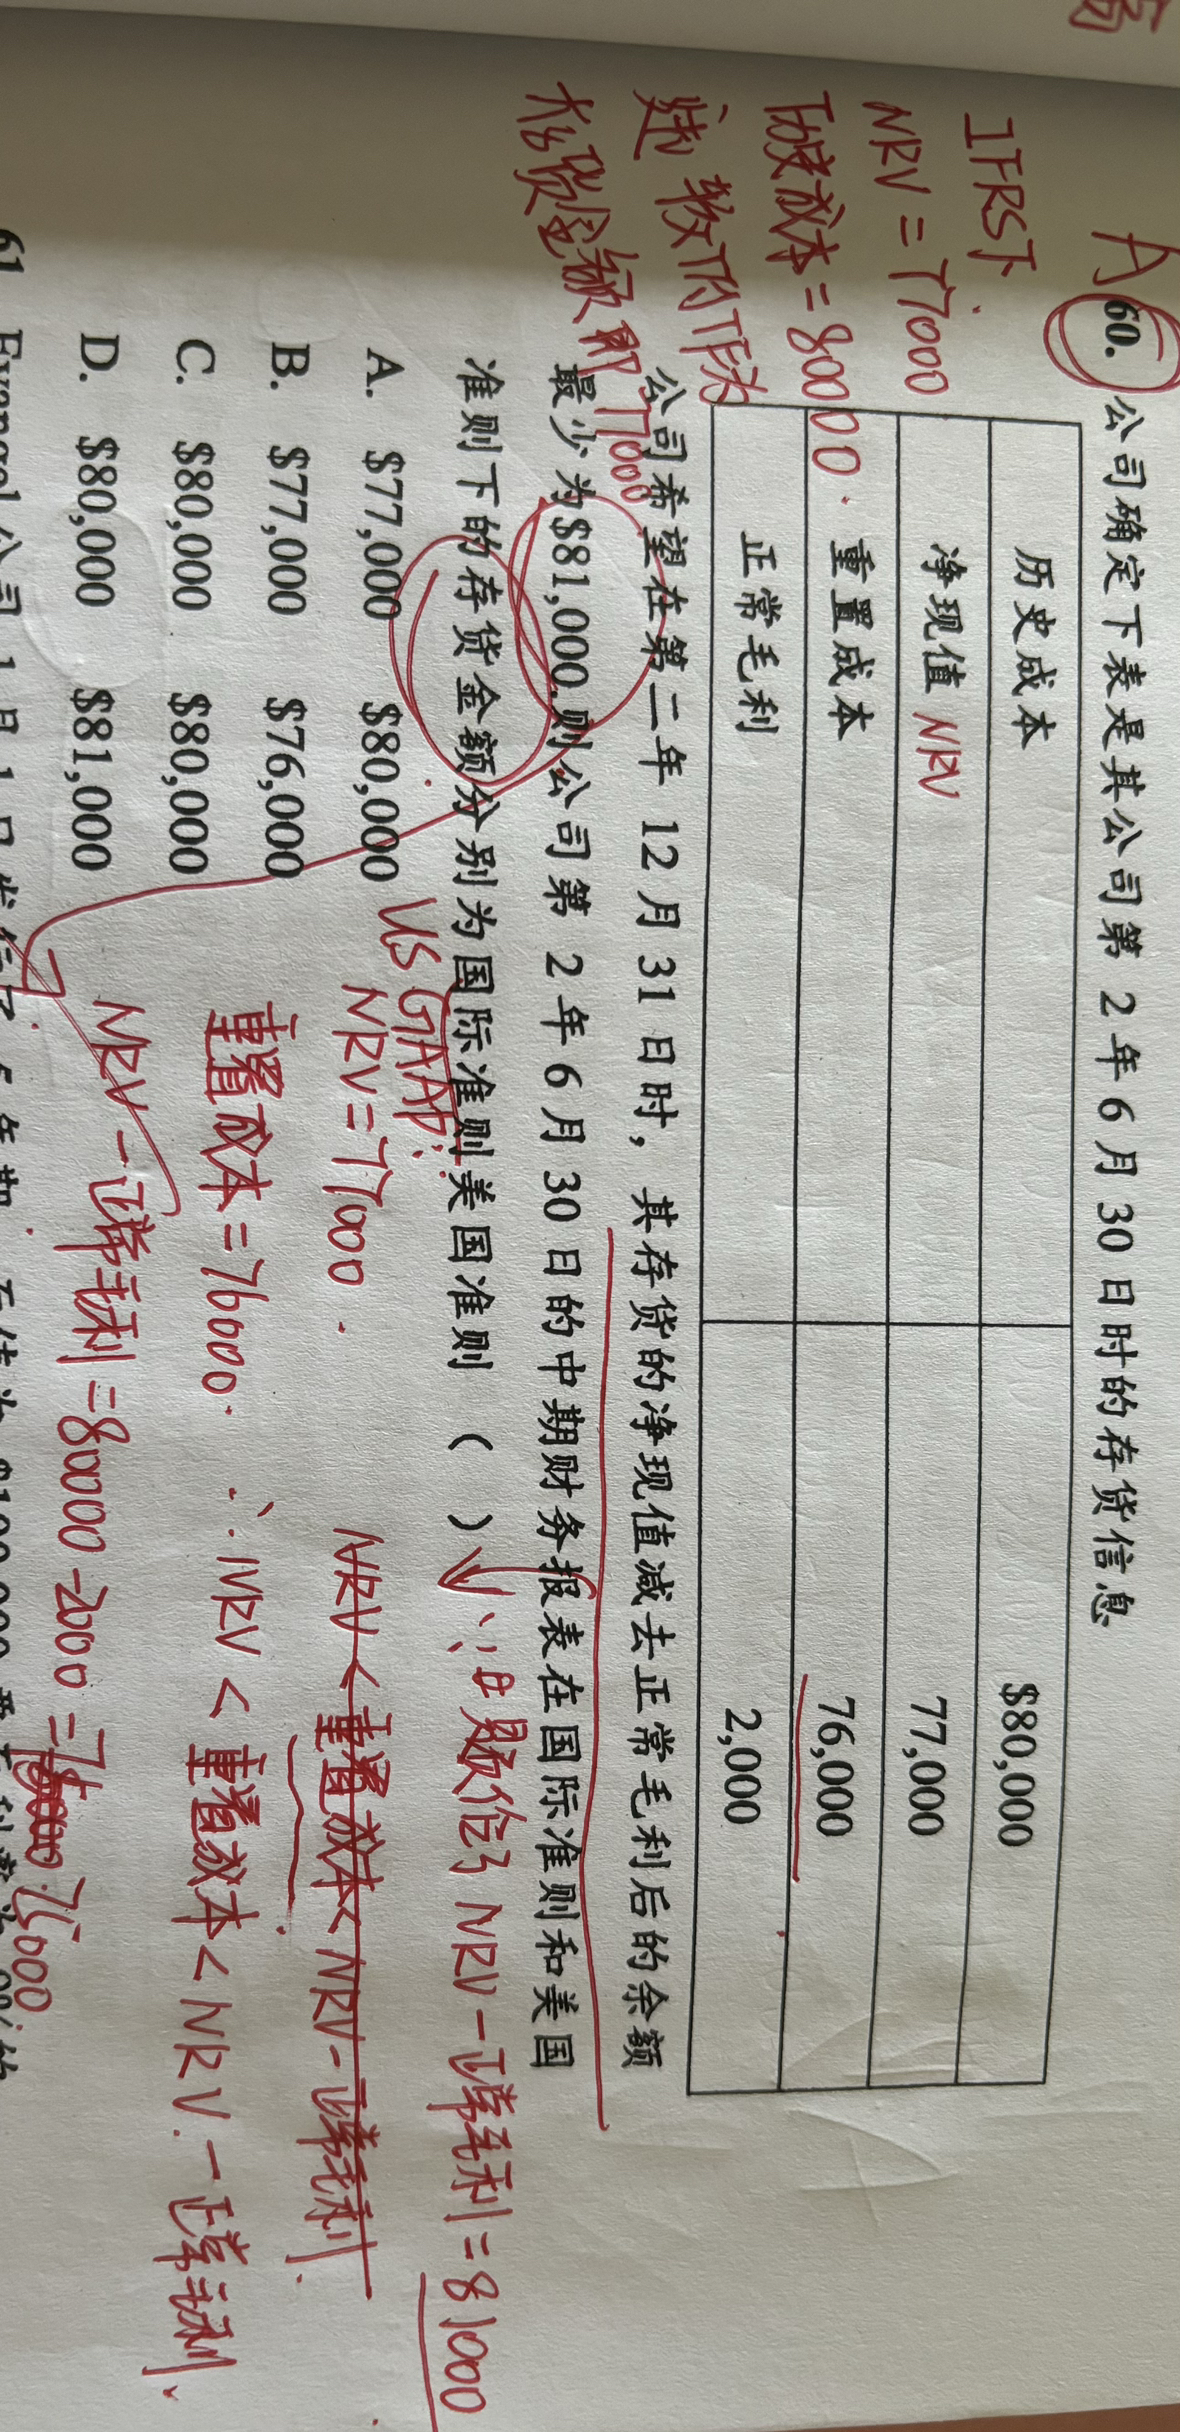 A
60. 公司确定下表是其公司第 2 年 6 月 30 日时的存货信息
历史成本 $80,000
净现值 NRV 77,000
重置成本 76,000
正常毛利 2,000
IFRS下
NRV = 77000
历史成本 = 80000.
存货金额即 77000
公司希望在第二年 12 月 31 日时，其存货的净现值减去正常毛利后的余额
最少为$81,000.则公司第 2 年 6 月 30 日的中期财务报表在国际准则和美国
准则下的存货金额分别为国际准则美国准则 （ ）
NRV-正常毛利=81000
A. $77,000 $80,000
B. $77,000 $76,000
C. $80,000 $80,000
D. $80,000 $81,000
US GAAP:
NRV=77000.
NRV<重置成本<NRV-正常毛利.
重置成本=76000.
∴ NRV < 重置成本 < NRV - 正常毛利.
NRV-正常毛利=80000-2000=
61.